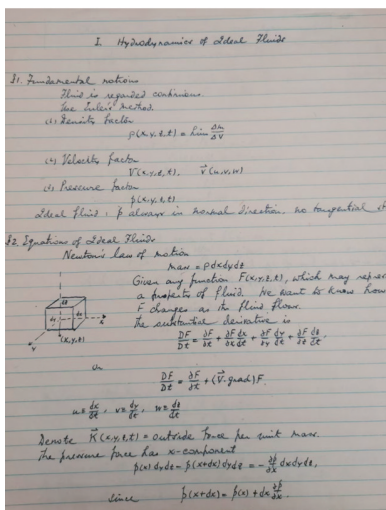 I. Hydrodynamics of Ideal Fluids
§1. Fundamental notions
Fluid is regarded continuous
Use Euler's method.
Density factor
ρ(x,y,z,t) = lim Δm/ΔV
Velocity factor
V(x,y,z,t), v⃗(u,v,w)
Pressure factor
p(x,y,z,t)
Ideal fluid: p always in normal direction, no tangential
§2. Equations of Ideal Fluids
Newton's law of motion
mass = ρdxdydz
Given any function F(x,y,z,t), which may repres
a property of fluid. We want to know how
F changes as the fluid flows.
The substantial derivative is
DF/Dt = ∂F/∂t + ∂F/∂x dx/dt + ∂F/∂y dy/dt + ∂F/∂z dz/dt.
or
DF/Dt = ∂F/∂t + (V⃗·grad)F.
u = dx/dt, v = dy/dt, w = dz/dt
dz
dy
dx
x
y
(x,y,z)
Denote K⃗(x,y,z,t) = outside force per unit mass.
The pressure force has x-component
p(x)dydz − p(x+dx)dydz = −∂p/∂x dxdydz,
since p(x+dx) = p(x) + dx ∂p/∂x.